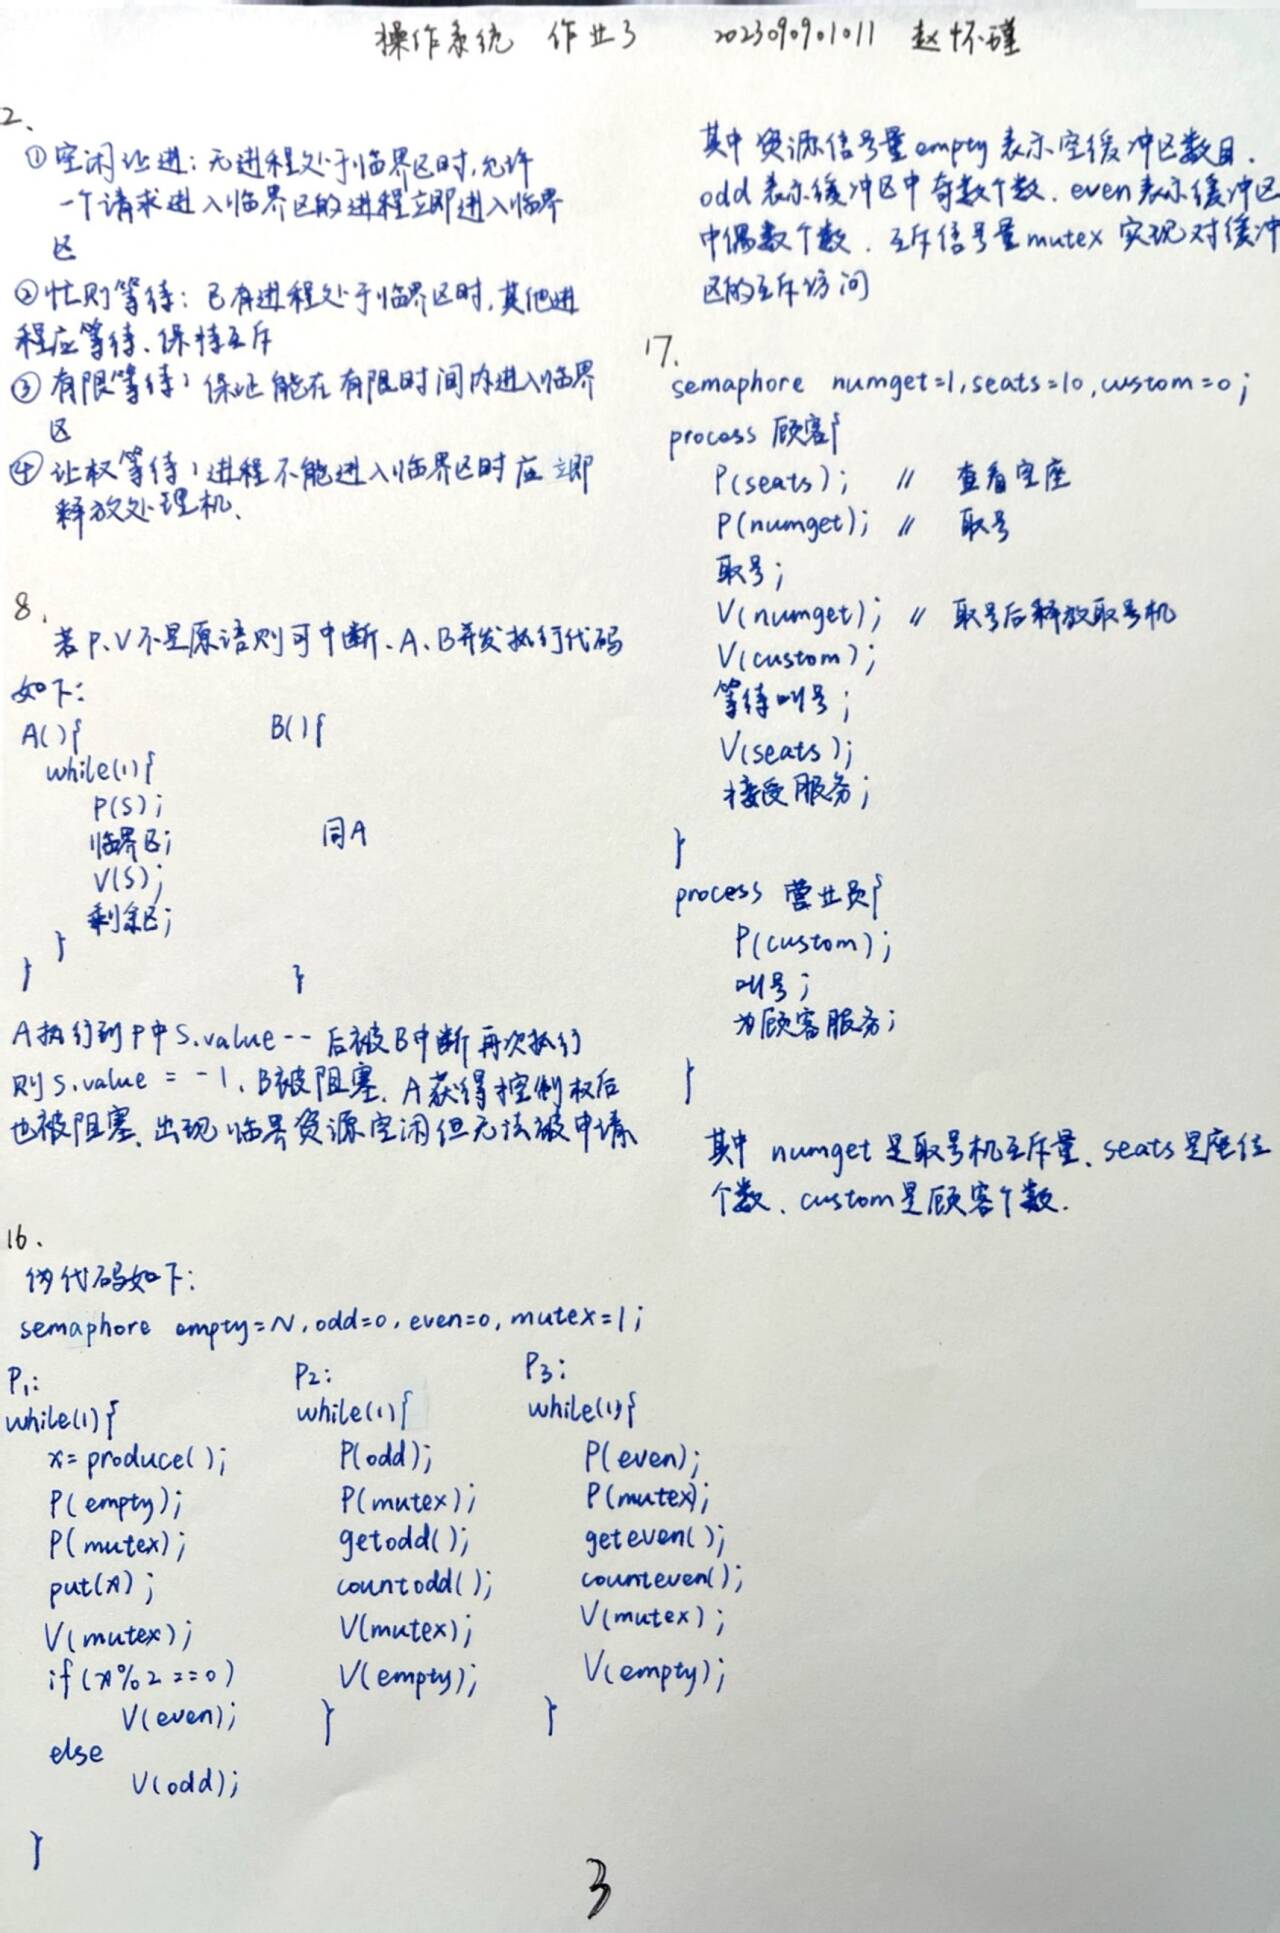 操作系统 作业3 2023090901011 赵怀瑾
2、
①空闲让进：无进程处于临界区时,允许
一个请求进入临界区的进程立即进入临界
区
②忙则等待：已有进程处于临界区时,其他进
程应等待、保持互斥
③有限等待：保证能在有限时间内进入临界
区
④让权等待：进程不能进入临界区时应立即
释放处理机、
8、
若P、V不是原语则可中断、A、B并发执行代码
如下:
A(){
while(1){
P(S);
临界区;
V(S);
剩余区;
}
}
B(){
同A
}
A执行到P中S.value--后被B中断再次执行
则S.value = -1、B被阻塞、A获得控制权后
也被阻塞、出现临界资源空闲但无法被申请
16、
伪代码如下:
semaphore empty=N,odd=0,even=0,mutex=1;
P1:
while(1){
x=produce();
P(empty);
P(mutex);
put(x);
V(mutex);
if(x%2==0)
V(even);
else
V(odd);
}
P2:
while(1){
P(odd);
P(mutex);
getodd();
countodd();
V(mutex);
V(empty);
}
P3:
while(1){
P(even);
P(mutex);
geteven();
counteven();
V(mutex);
V(empty);
}
其中资源信号量empty表示空缓冲区数目、
odd表示缓冲区中奇数个数、even表示缓冲区
中偶数个数、互斥信号量mutex实现对缓冲
区的互斥访问
17.
semaphore numget=1,seats=10,custom=0;
process 顾客{
P(seats); // 查看空座
P(numget); // 取号
取号;
V(numget); // 取号后释放取号机
V(custom);
等待叫号;
V(seats);
接受服务;
}
process 营业员{
P(custom);
叫号;
为顾客服务;
}
其中 numget是取号机互斥量、seats是座位
个数、custom是顾客个数.
3